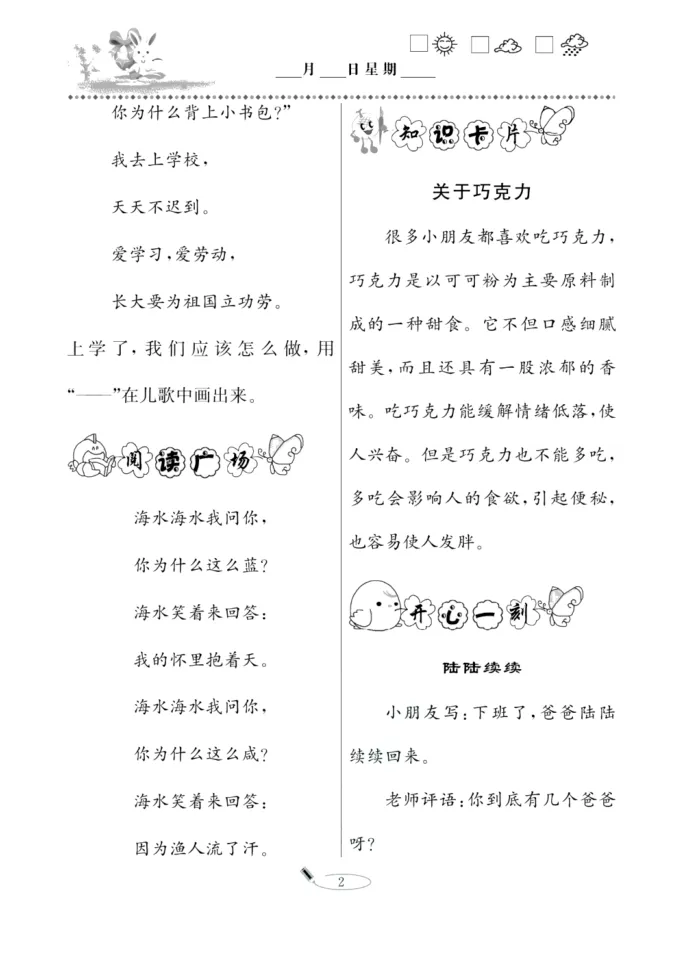 ___月___日星期____
你为什么背上小书包?”
我去上学校，
天天不迟到。
爱学习，爱劳动，
长大要为祖国立功劳。
上学了，我们应该怎么做，用
“——”在儿歌中画出来。
阅读广场
海水海水我问你，
你为什么这么蓝?
海水笑着来回答：
我的怀里抱着天。
海水海水我问你，
你为什么这么咸?
海水笑着来回答：
因为渔人流了汗。
知识卡片
关于巧克力
很多小朋友都喜欢吃巧克力，
巧克力是以可可粉为主要原料制
成的一种甜食。它不但口感细腻
甜美，而且还具有一股浓郁的香
味。吃巧克力能缓解情绪低落，使
人兴奋。但是巧克力也不能多吃，
多吃会影响人的食欲，引起便秘，
也容易使人发胖。
开心一刻
陆陆续续
小朋友写：下班了，爸爸陆陆
续续回来。
老师评语：你到底有几个爸爸
呀?
2